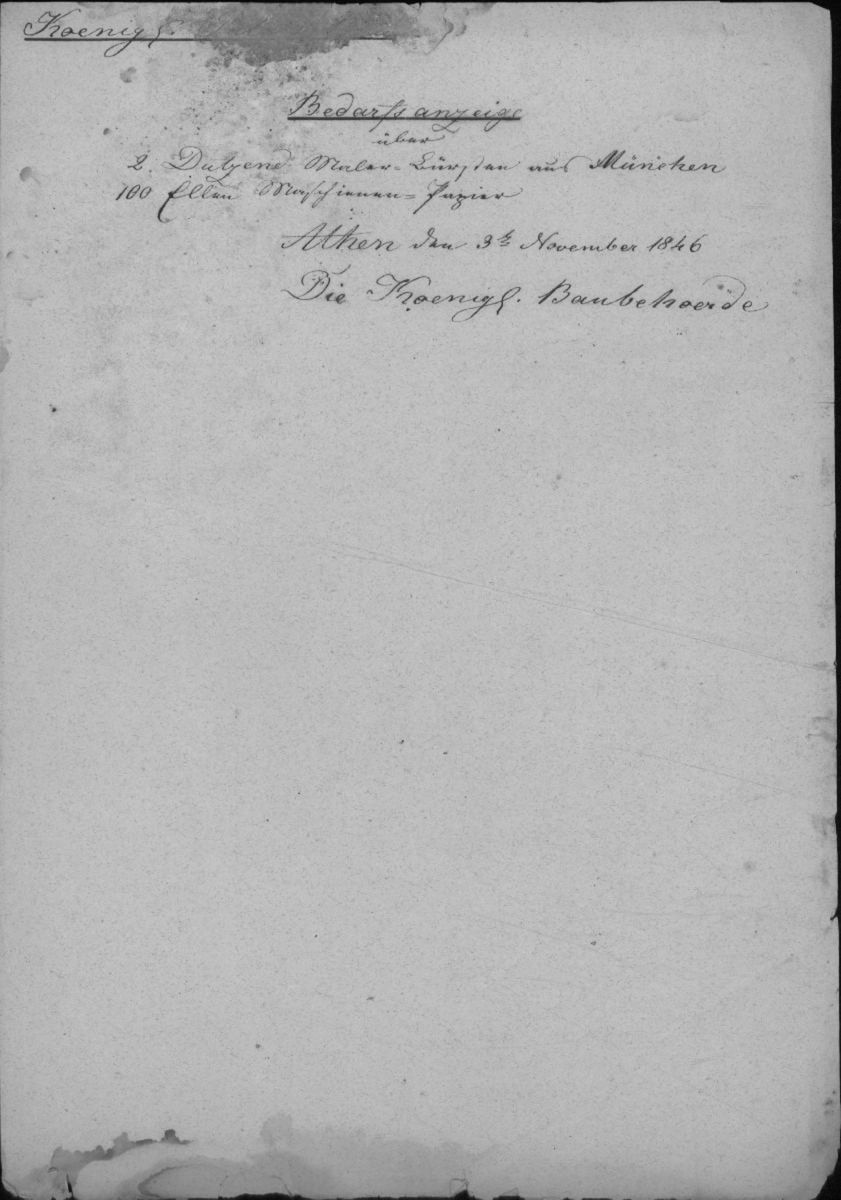 Koenigl.
Bedarfsanzeige
über
2. Dutzend Maler-Bürsten aus München
100 Ellen Maschienen-Papier
Athen den 3t November 1846
Die Koenigl. Baubehoerde